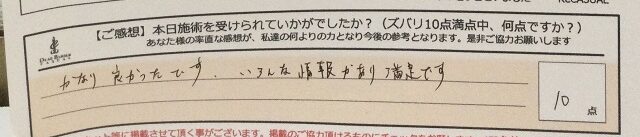 【ご感想】本日施術を受けられていかがでしたか？（ズバリ10点満点中、何点ですか？）
あなた様の率直な感想が、私達の何よりの力となり今後の参考となります。是非ご協力お願いします
かなり良かったです．いろんな情報があり満足です
10点
等に掲載させて頂く事がございます。掲載のご協力頂けるものにチェックを